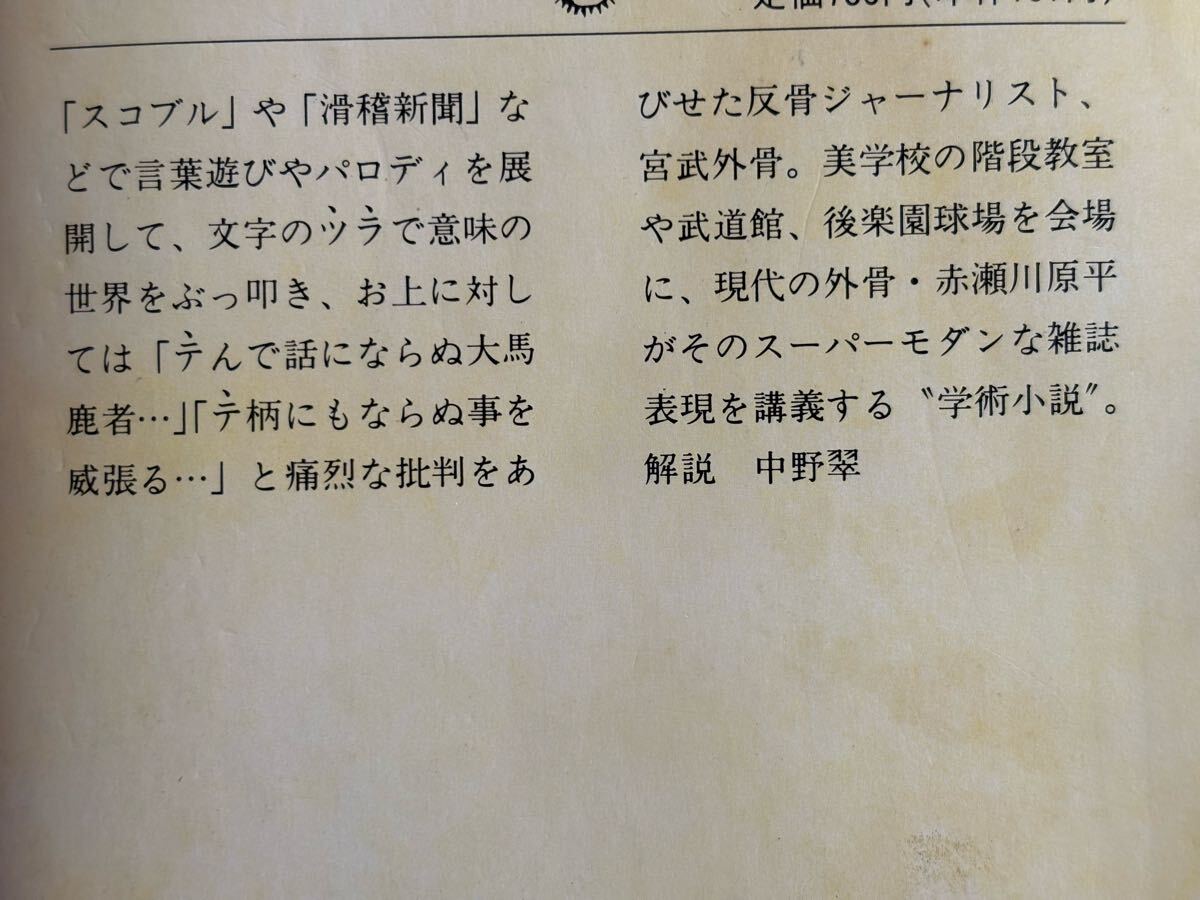 「スコブル」や「滑稽新聞」な
どで言葉遊びやパロディを展
開して、文字のツラで意味の
世界をぶっ叩き、お上に対し
ては「テんで話にならぬ大馬
鹿者…」「テ柄にもならぬ事を
威張る…」と痛烈な批判をあ
びせた反骨ジャーナリスト、
宮武外骨。美学校の階段教室
や武道館、後楽園球場を会場
に、現代の外骨・赤瀬川原平
がそのスーパーモダンな雑誌
表現を講義する〝学術小説〟。
解説　中野翠